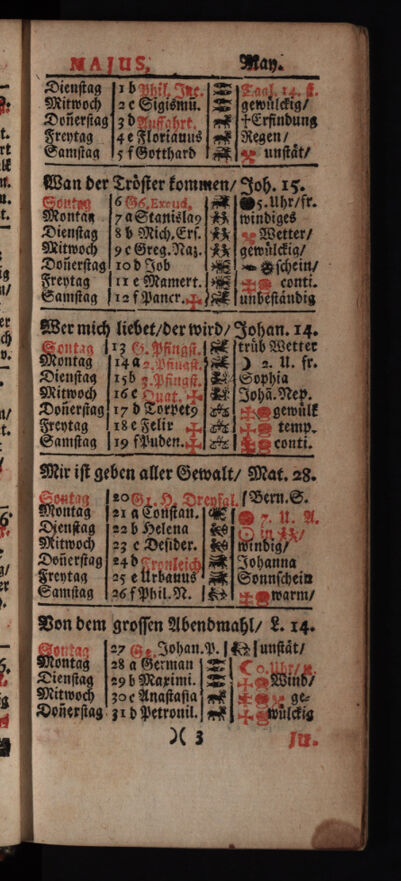 MAJUS, May.
Dienstag 1 b Phil. Jac. Tagl. 14. st.
Mitwoch 2 c Sigismū. gewülckig/
Doñerstag 3 d Auffahrt. †Erfindung
Freytag 4 e Florianus Regen/
Samstag 5 f Gotthard unstät/
Wan der Tröster kommen/ Joh. 15.
Sontag 6 G6. Exaud. 5. Uhr/fr.
Montag 7 a Stanislaꝰ windiges
Dienstag 8 b Mich. Ers. Wetter/
Mitwoch 9 c Greg. Naz. gewülckig/
Doñerstag 10 d Job schein/
Freytag 11 e Mamert. conti.
Samstag 12 f Pancr. unbeständig
Wer mich liebet/der wird/ Johan. 14.
Sontag 13 G. Pfingst. trüb Wetter
Montag 14 a 2. Pfingst. ☽ 2. U. fr.
Dienstag 15 b 3. Pfingst. Sophia
Mitwoch 16 c Quat. Johā. Nep.
Doñerstag 17 d Torpetꝰ gewülk
Freytag 18 e Felix temp.
Samstag 19 f Puden. conti.
Mir ist geben aller Gewalt/ Mat. 28.
Sontag 20 G1. H. Dreyfal. Bern. S.
Montag 21 a Constan. 7. U. A.
Dienstag 22 b Helena ☉ in
Mitwoch 23 c Desider. windig/
Doñerstag 24 d Fronleich. Johanna
Freytag 25 e Urbanus Sonnschein
Samstag 26 f Phil. N. warm/
Von dem grossen Abendmahl/ L. 14.
Sontag 27 G2. Johan. P. unstät/
Montag 28 a German ☾ 0. Uhr/
Dienstag 29 b Maximi. Wind/
Mitwoch 30 c Anastasia ge-
Doñerstag 31 d Petronil. wülckig
)( 3 JU.